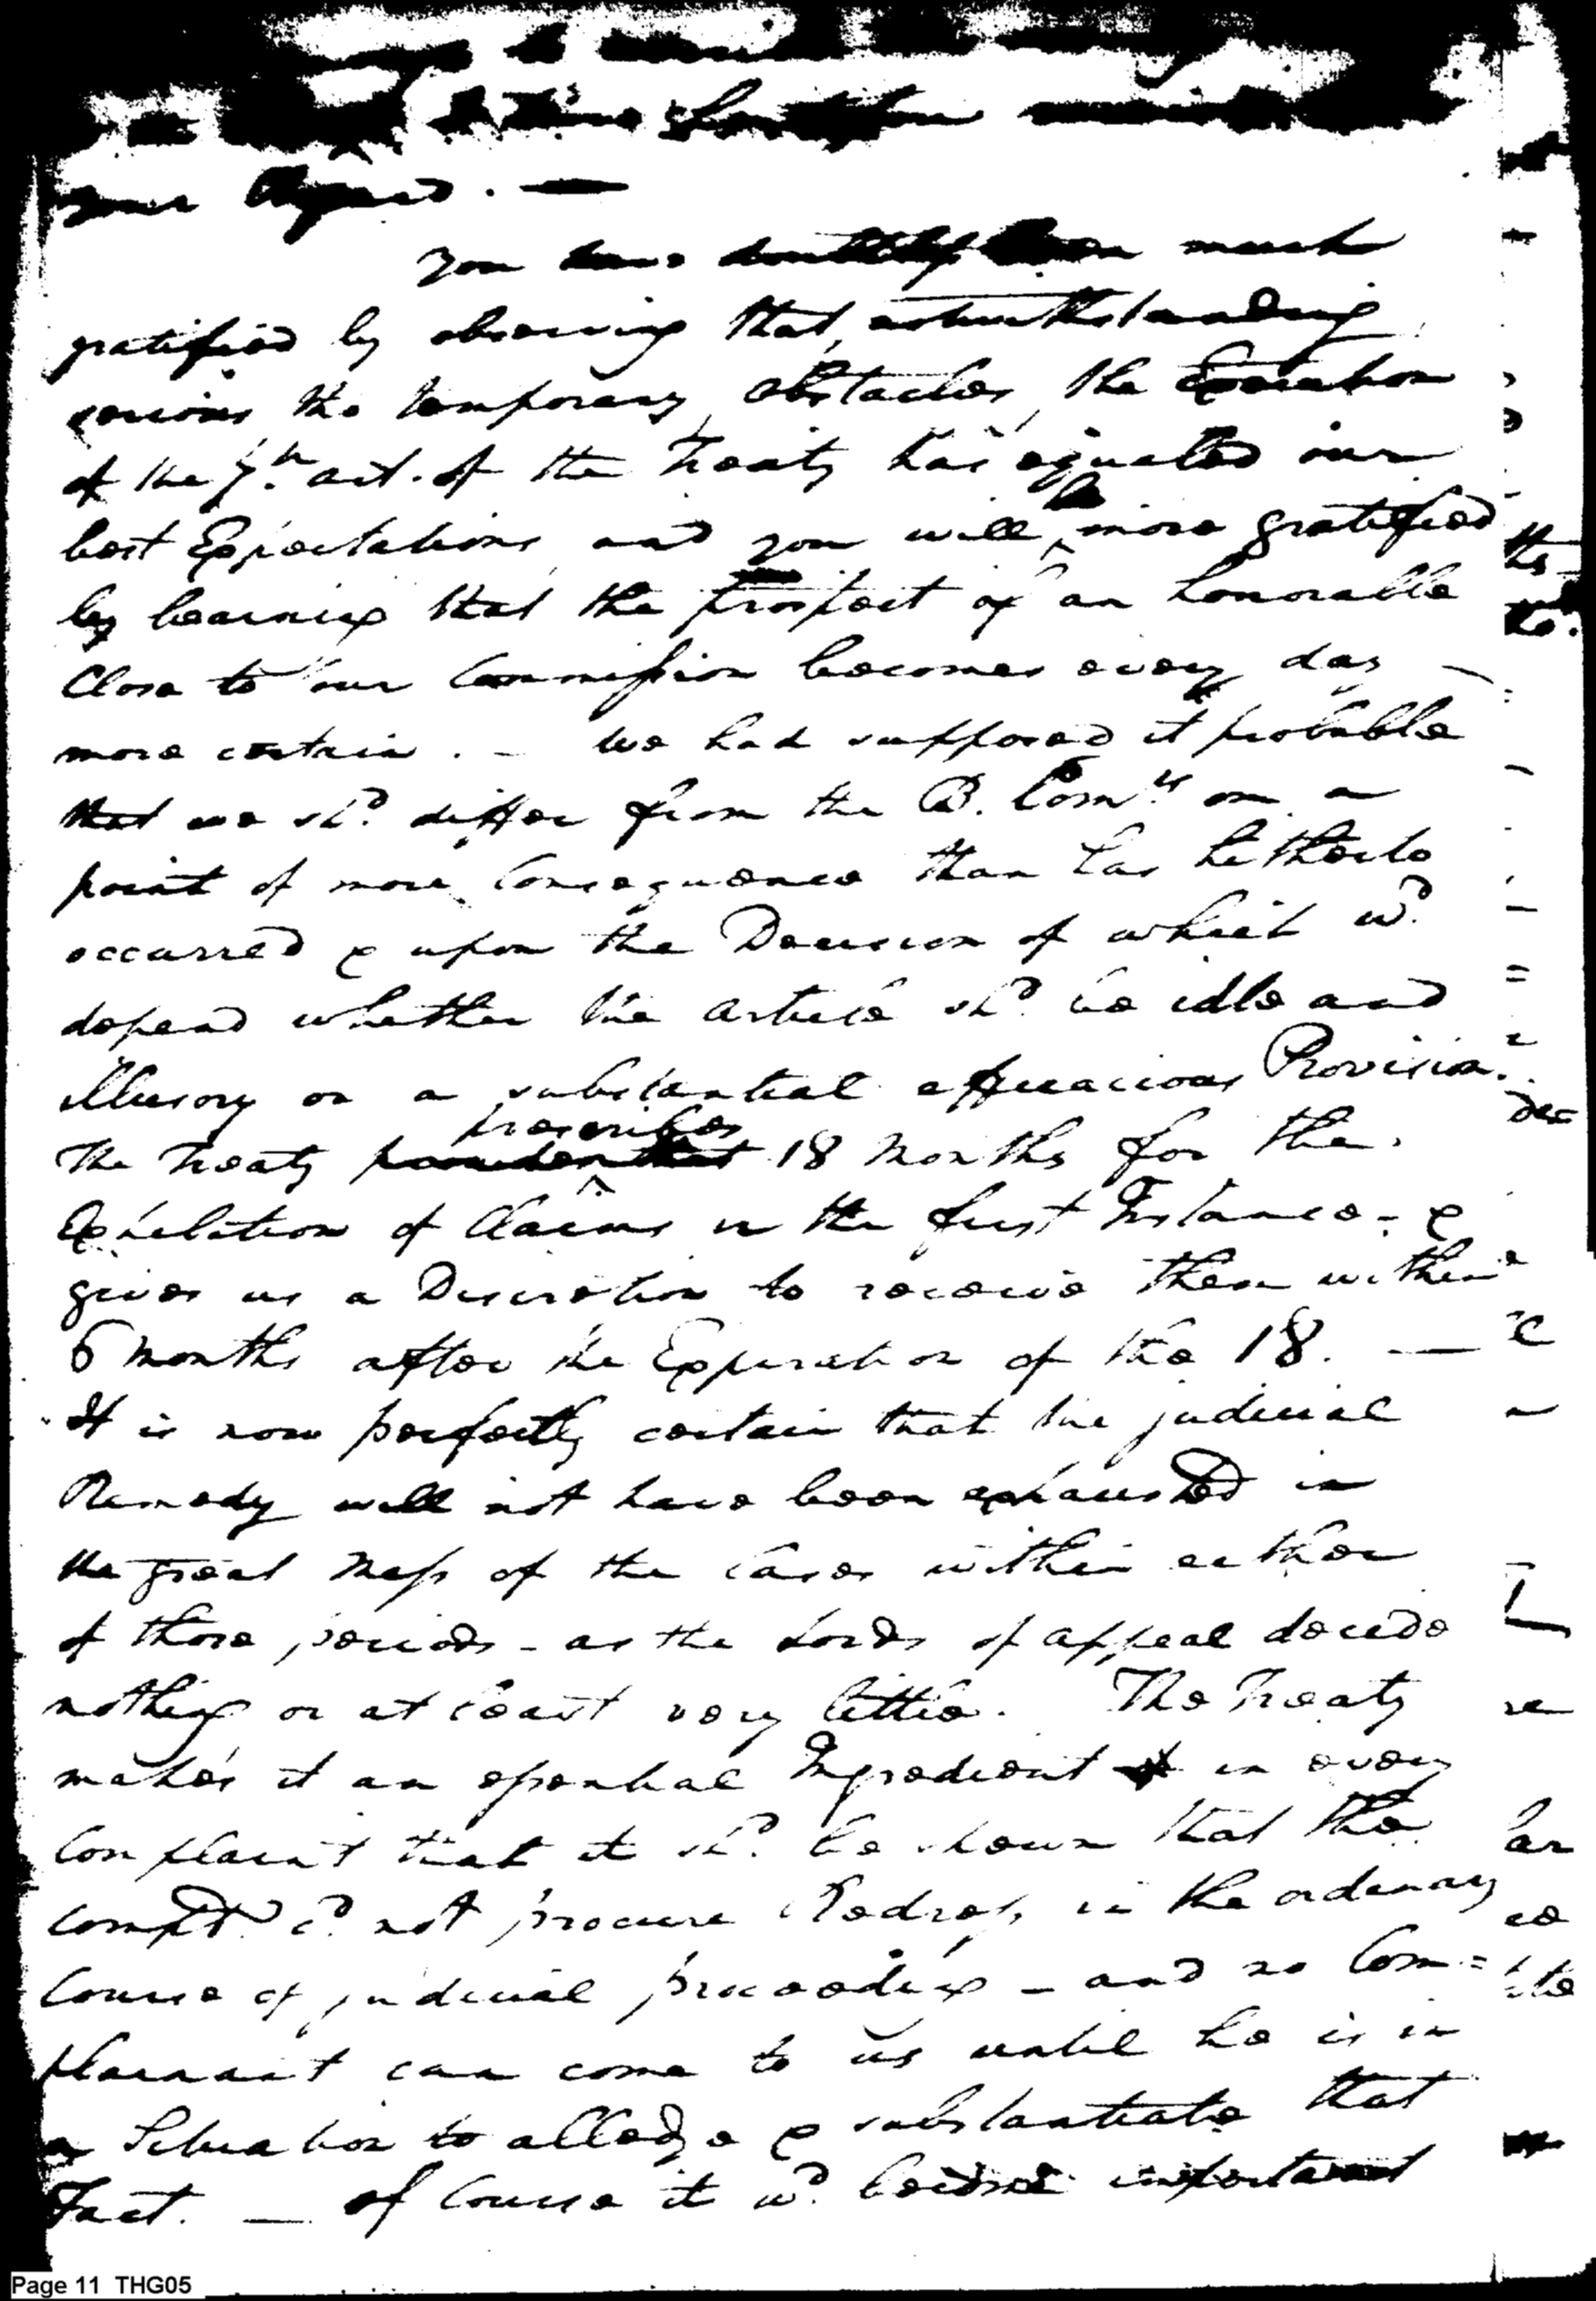 your Regard. —
you have doubtless been much
gratified by observing that, notwithstanding
serious tho temporary obstacles, the Execution
of the 7th. art. of the Treaty has equalled our
best Expectations and you will be more gratified
by learning that the prospect of an honorable
Close to our Commission becomes every day
more certain. — We had supposed it probable
that we shd. differ from the B. Comrs. on a
point of more Consequence than has hitherto
occurred & upon the Decision of which wd.
depend whether the article shd. be idle and
illusory or a substantial efficacious Provision.
prescribes
The Treaty 18 Months for the
Exhibition of Claims in the first Instance - &
gives us a Discretion to receive them within
6 Months after the Expiration of the 18. —
It is now perfectly certain that the judicial
Remedy will not have been exhausted in
the great Mass of the Cases within either
of those periods - as the Lords of appeal decide
nothing or at least very little. The Treaty
makes it an essential Ingredient in every
Complaint that it shd. be shown that the
Complt. cd. not procure Redress in the ordinary
Course of judicial proceeding - and no Com=
plainant can come to us until he is in
a Situation to alledge & substantiate that
Fact. — Of Course it wd. become important
Page 11 THG05